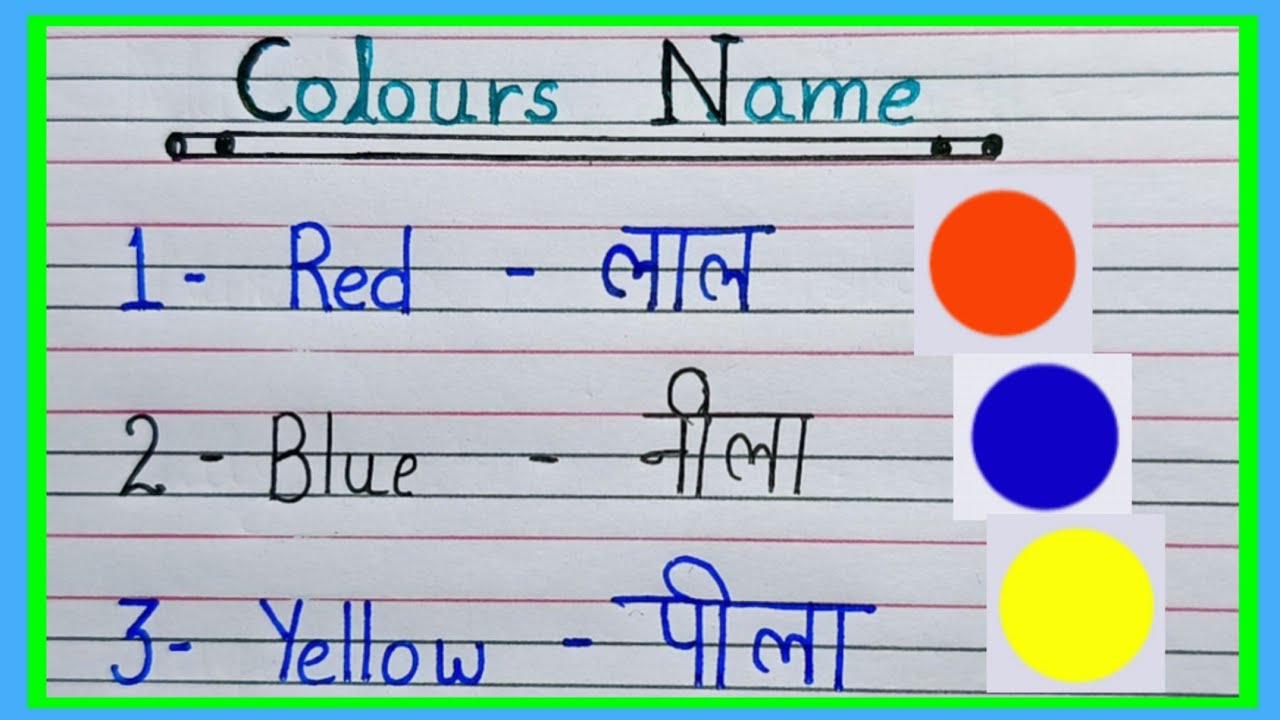 Colours Name
1- Red - लाल
2 - Blue - नीला
3- Yellow - पीला